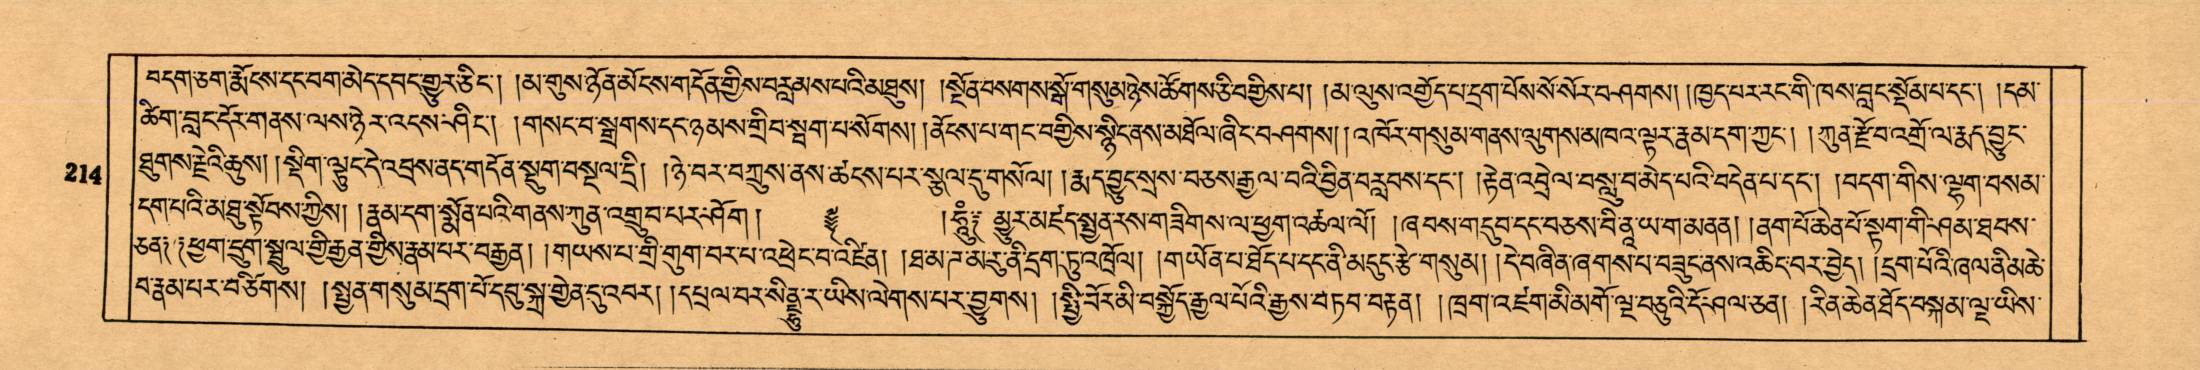 བདག་ཅག་རྨོངས་དང་བག་མེད་དབང་གྱུར་ཅིང་། །མ་གུས་ཉོན་མོངས་གདོན་གྱིས་བརླམས་པའི་མཐུས། །སྔོན་བསགས་སྒོ་གསུམ་ཉེས་ཚོགས་ཅི་བགྱིས་པ། །མ་ལུས་འགྱོད་པ་དྲག་པོས་སོ་སོར་བཤགས། །ཁྱད་པར་རང་གི་ཁས་བླང་སྡོམ་པ་དང་། །དམ་
ཚིག་བླང་དོར་གནས་ལས་ཉེ་ར་འདས་ཤིང་། །གསང་བ་སྒྲགས་དང་ཉམས་གྲིབ་སྦག་པ་སོགས། །ནོངས་པ་གང་བགྱིས་སྙིང་ནས་མཐོལ་ཞིང་བཤགས། །འཁོར་གསུམ་གནས་ལུགས་མཁའ་ལྟར་རྣམ་དག་ཀྱང་། །ཀུན་རྫོབ་འགྲོ་ལ་རྨད་བྱུང་
214
ཐུགས་རྗེའི་ཆུས། །སྡིག་ལྟུང་དེ་འབྲས་ནད་གདོན་སྡུག་བསྔལ་དྲི། །ཉེ་བར་བཀྲུས་ནས་ཚངས་པར་སྩལ་དུ་གསོལ། །རྨད་བྱུང་སྲས་བཅས་རྒྱལ་བའི་བྱིན་བརླབས་དང་། །རྟེན་འབྲེལ་བསླུ་བ་མེད་པའི་བདེན་པ་དང་། །བདག་གིས་ལྷག་བསམ་
དག་པའི་མཐུ་སྟོབས་ཀྱིས། །རྣམ་དག་སྨོན་པའི་གནས་ཀུན་འགྲུབ་པར་ཤོག །།ཧཱུྃ༔ མྱུར་མཛད་སྤྱན་རས་གཟིགས་ལ་ཕྱག་འཚལ་ལོ། །ཞབས་གདུབ་དང་བཅས་བི་ནཱ་ཡ་ག་མནན། །ནག་པོ་ཆེན་པོ་སྟག་གི་ཤམ་ཐབས་
ཅན༔ ༔ཕྱག་དྲུག་སྦྲུལ་གྱི་རྒྱན་གྱིས་རྣམ་པར་བརྒྱན། །གཡས་པ་གྲི་གུག་བར་པ་འཕྲེང་བ་འཛིན། །ཐ་མ་ཌ་མ་རུ་ནི་དྲག་ཏུ་འཁྲོལ། །གཡོན་པ་ཐོད་པ་དང་ནི་མདུང་རྩེ་གསུམ། །དེ་བཞིན་ཞགས་པ་བཟུང་ནས་འཆིང་བར་བྱེད། །དྲག་པོའི་ཞལ་ནི་མཆེ་
བ་རྣམ་པར་བཙིགས། །སྤྱན་གསུམ་དྲག་པོ་དབུ་སྐྲ་གྱེན་དུ་འབར། །དཔྲལ་བར་སིནྡྷུ་ར་ཡིས་ལེགས་པར་བྱུགས། །སྤྱི་བོར་མི་བསྐྱོད་རྒྱལ་པོའི་རྒྱས་བཏབ་བརྟན། །ཁྲག་འཛག་མི་མགོ་ལྔ་བཅུའི་དོ་ཤལ་ཅན། །རིན་ཆེན་ཐོད་བསྐམ་ལྔ་ཡིས་